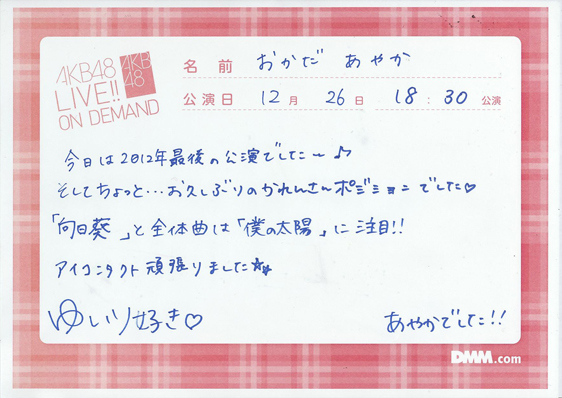 AKB48
LIVE!!
ON DEMAND
AKB
48
名前 おかだ あやか
公演日 12月 26日 18:30公演
今日は2012年最後の公演でした〜♪
そしてちょっと…お久しぶりのかれんさんポジションでした♡
「向日葵」と全体曲は「僕の太陽」に注目!!
アイコンタクト頑張りました☆★
ゆいり好き♡
あやかでした!!
DMM.com